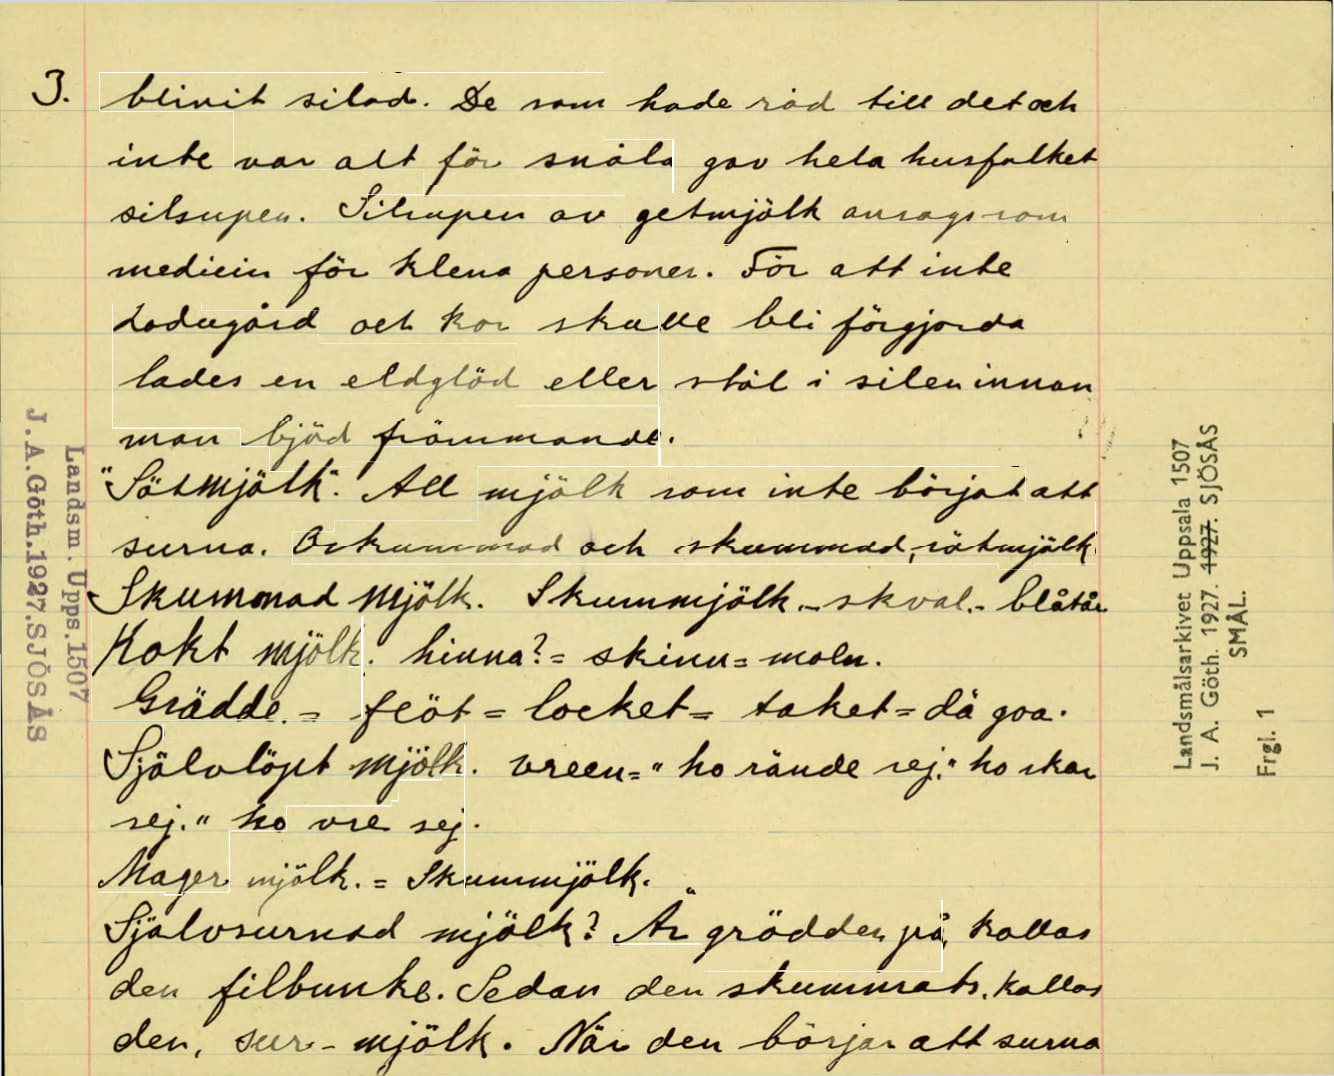 3.
blivit silad. De som hade råd till det och
inte var alt för snåla gav hela husfolket
silsupen. Silsupen av getmjölk ansags som
medicin för klena personer. För att inte
Ladugård och kor skulle bli förgjorda
lades en eldglöd eller stål i silen innan
man bjöd främmande.
"Sötmjölk". All mjölk som inte börjat att
surna. Oskummad och skummad, sötmjölk
Skummad mjölk. Skummjölk - skval. - blåtår
Kokt mjölk. hinna? = skinn = moln.
Grädde. = flöt = locket = taket = då goa.
Självlöpt mjölk. vreen = "ho rände sej." ho skar
sej." ho vre sej.
Mager mjölk. = Skummjölk.
Självsurnad mjölk? Är grädden på, kallas
den filbunke. Sedan den skummats, kallas
den, sur-mjölk. När den börjar att surna
Landsm. Upps. 1507
J. A. Göth. 1927. SJÖSÅS
Landsmålsarkivet Uppsala 1507
J. A. Göth. 1927. 1927. SJÖSÅS
SMÅL.
Frgl. 1